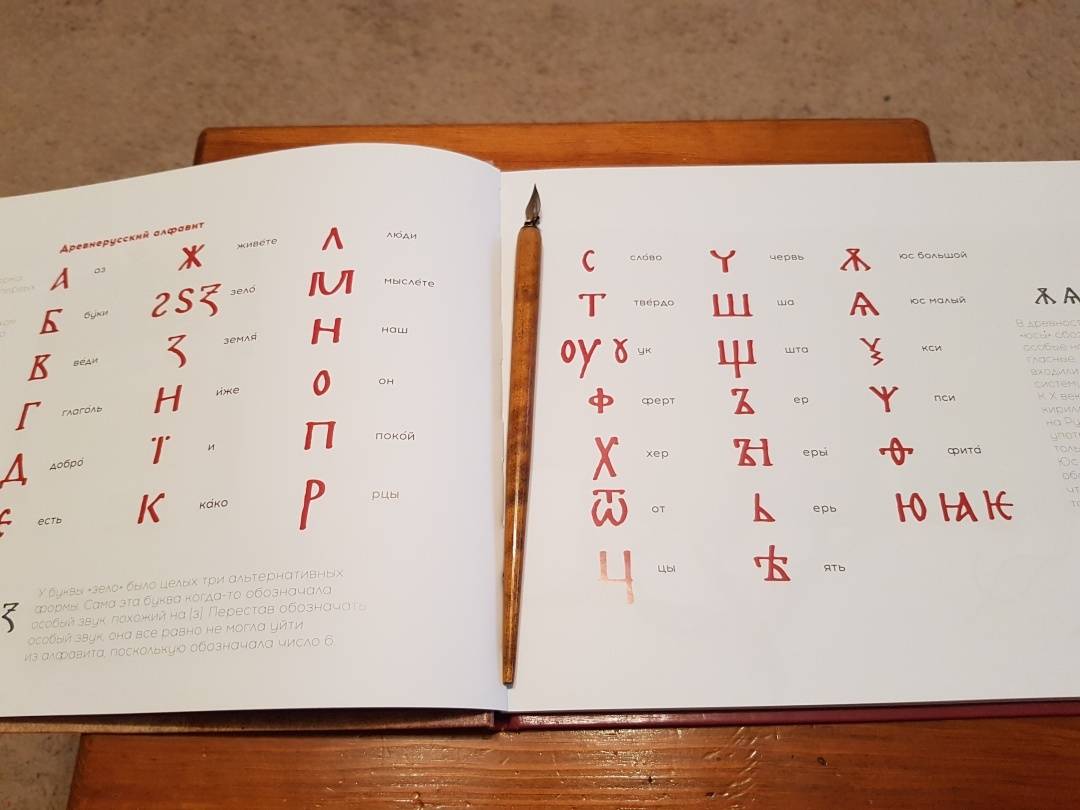 Древнерусский алфавит
А аз
Б бу́ки
В ве́ди
Г глаго́ль
Д добро́
Є есть
Ж живе́те
Ꙅ Ѕ Ꙁ зело́
З земля́
Н и́же
Т и
К ка́ко
Л лю́ди
М мысле́те
Н наш
О он
П поко́й
Р рцы
У буквы «зело» было целых три альтернативных
формы. Сама эта буква когда-то обозначала
особый звук, похожий на [з]. Перестав обозначать
особый звук, она все равно не могла уйти
из алфавита, поскольку обозначала число 6.
С сло́во
Т тве́рдо
ОУ Ɣ ук
Ф ферт
Х хер
Ѿ от
Ц цы
Ҁ червь
Ш ша
Щ шта
Ъ ер
ЪН еры́
Ь ерь
Ѣ ять
Ѫ юс большой
Ѧ юс малый
Ѯ кси
Ѱ пси
Ѳ фита́
Ю Ꙗ Ѥ
Ѫ Ѧ
В древност
«юсы» обо
особые но
гласные.
входили
систем
К X век
кирилл
на Ру
упот
толь
Юс
об
чт
т